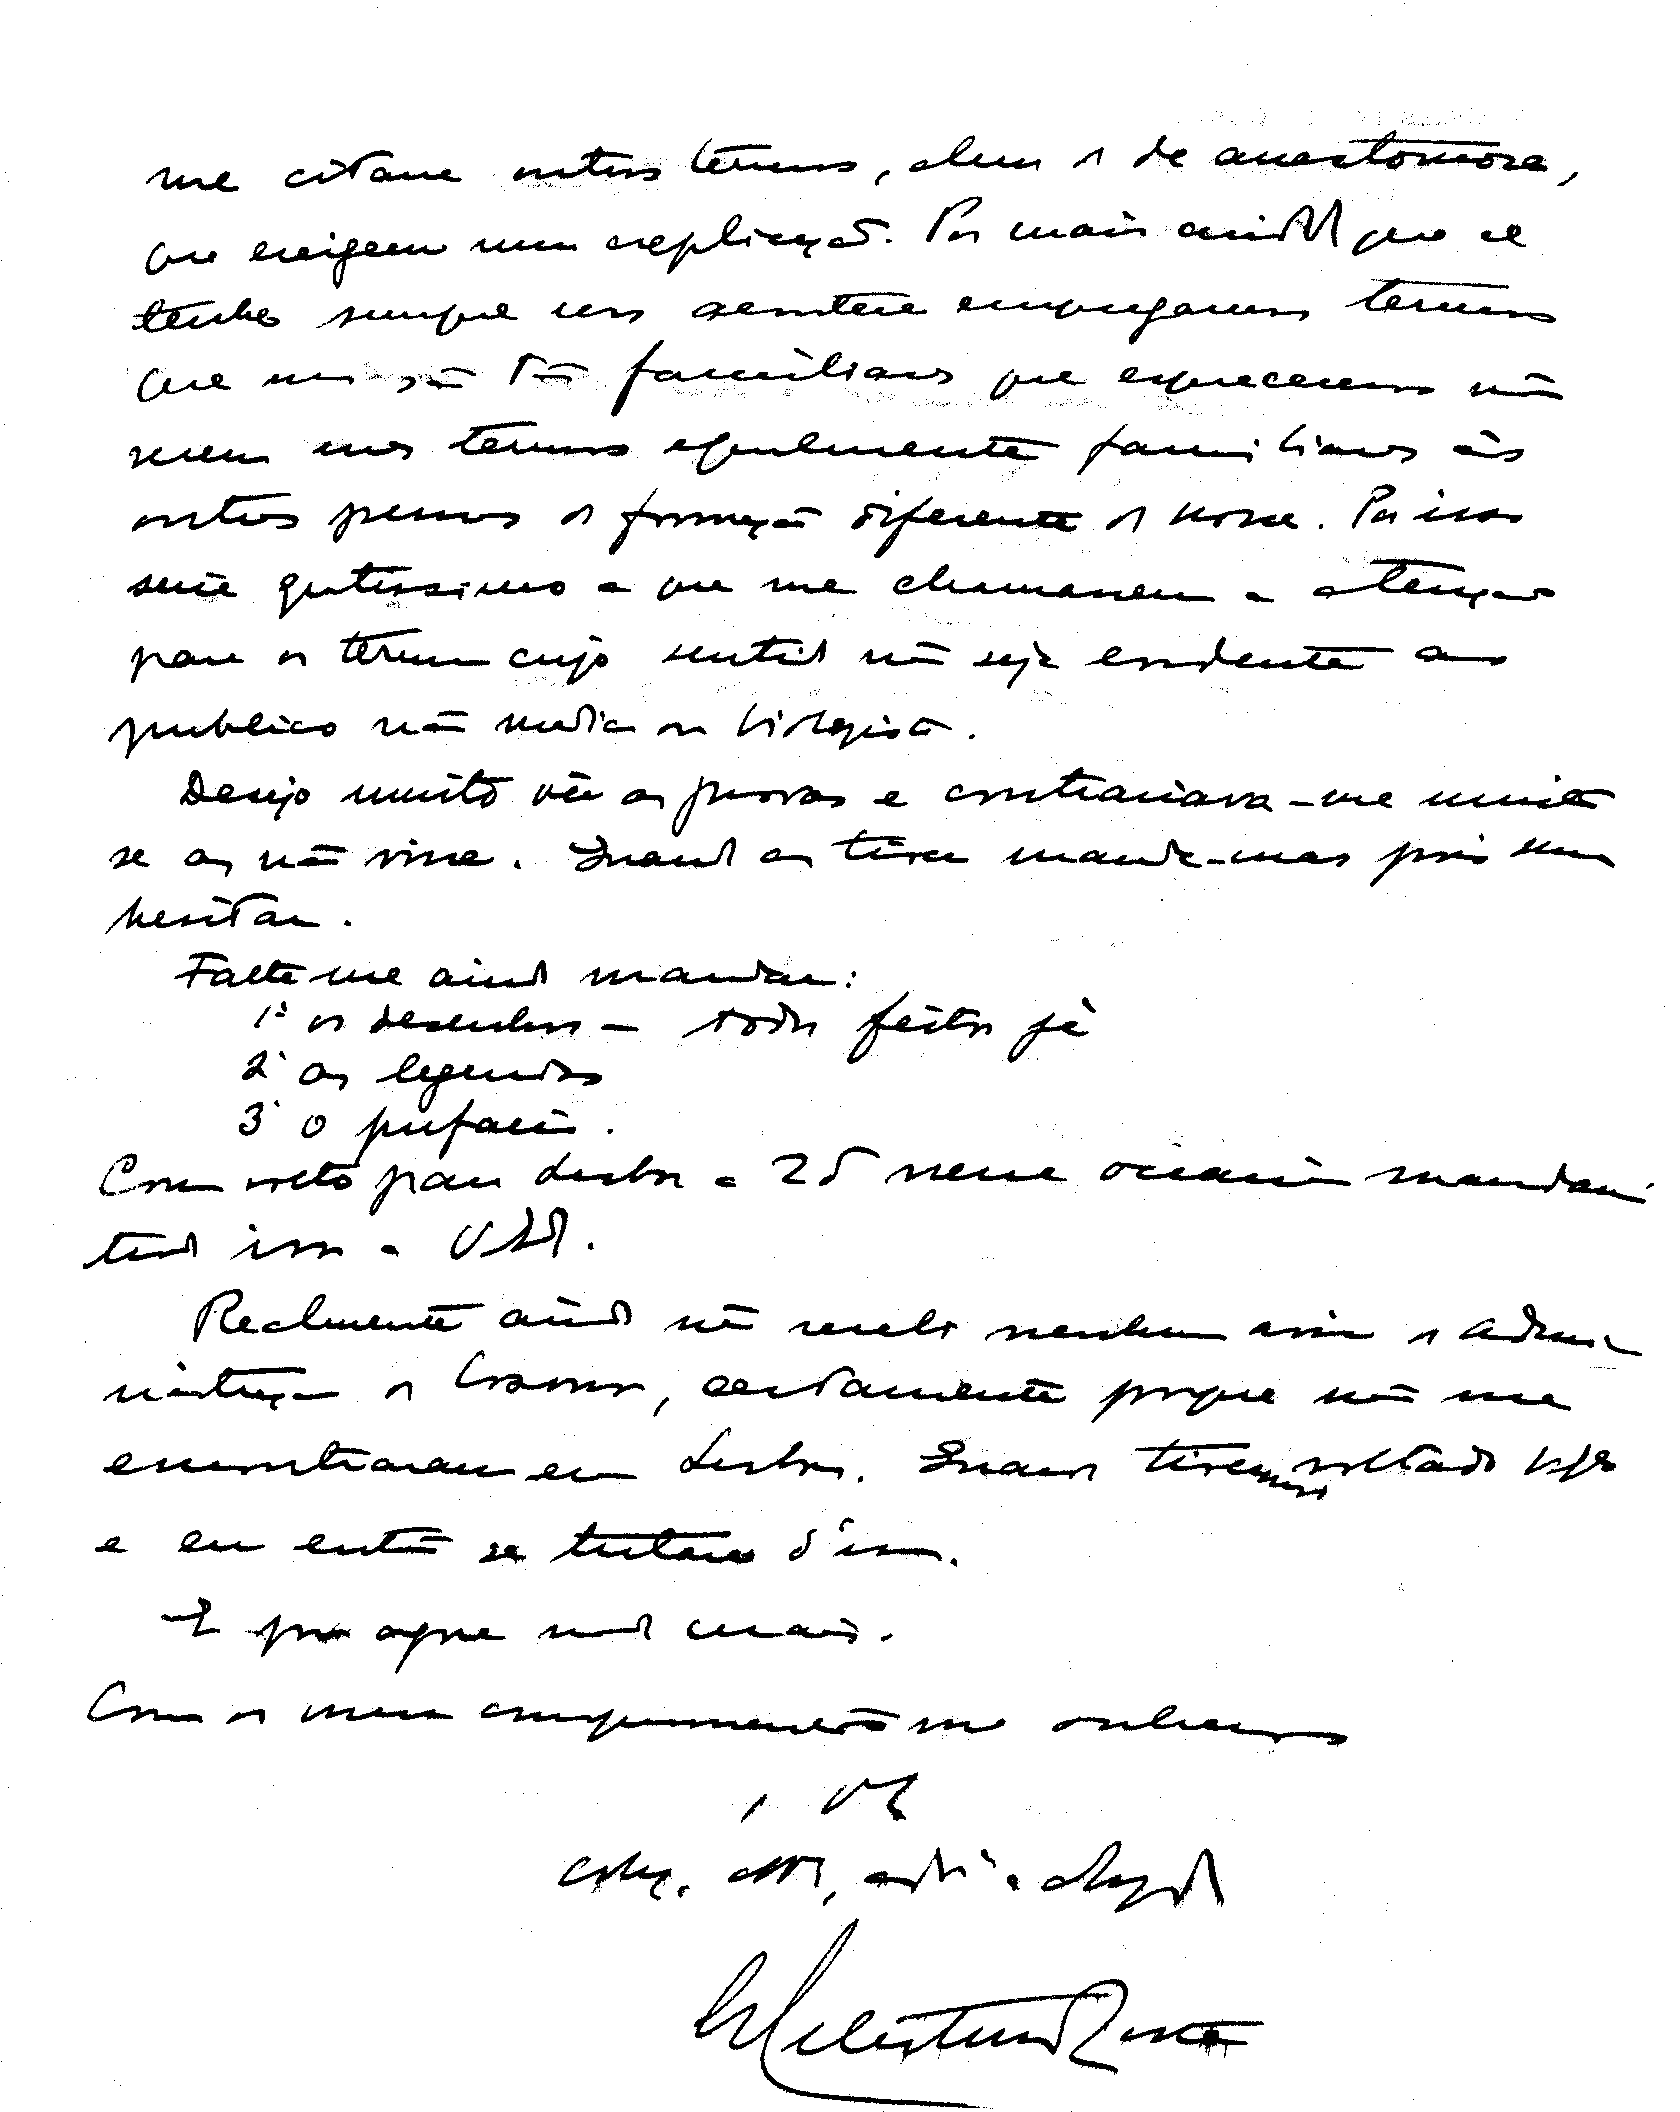 me citasse outros termos, alem do de anastomose,
que exigem uma explicação. Por mais cuidado que se
tenha sempre nos acontece empregarmos termos
que nos são tão familiares que esquecemos não
serem esses termos egualmente familiares às
outras pessoas de formação diferente da nossa. Por isso
seria gratissimo a que me chamassem a atenção
para os termos cujo sentido não seja evidente ao
publico não medico ou biologista.
Desejo muito vêr as provas e contrariava-me muito
se as não visse. Quando as tiver mande-mas pois sem
hesitar.
Falta-me ainda mandar:
1º os desenhos - todos feitos já
2º as legendas
3º o prefacio.
Como volto para Lisboa a 25 nessa ocasião mandarei
tudo isso a V.
Realmente ainda não recebi nenhum aviso da admi-
nistração da Cosmos, certamente porque não me
encontraram em Lisboa. Quando tivermos voltado
e eu então se tratará d'isso.
E por agora nada mais.
Com os meus cumprimentos me subscrevo
de V.
coleg. , e obrigado
Celestino da Costa